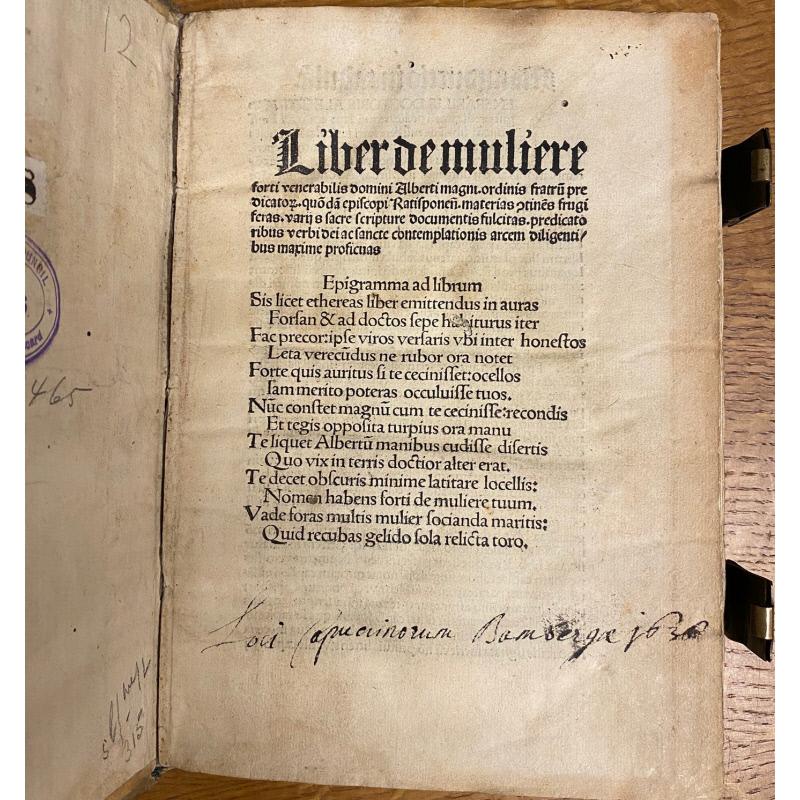 12
8
465
Liber de muliere
forti venerabilis domini Alberti magni. ordinis fratrū pre
dicatoꝝ. quōdā episcopi Ratisponeñ. materias ꝯtinēs frugi
feras. varijs sacre scripture documentis fulcitas. predicato
ribus verbi dei ac sancte contemplationis arcem diligenti/
bus maxime proficuas
Epigramma ad librum
Sis licet ethereas liber emittendus in auras
Forsan & ad doctos sepe habiturus iter
Fac precor: ipse viros versaris vbi inter honestos
Leta verecūdus ne rubor ora notet
Forte quis auritus si te cecinisset: ocellos
Iam merito poteras occuluisse tuos.
Nūc constet magnū cum te cecinisse: recondis
Et tegis opposita turpius ora manu
Te liquet Albertū manibus cudisse disertis
Quo vix in terris doctior alter erat.
Te decet obscuris minime latitare locellis:
Nomen habens forti de muliere tuum.
Vade foras multis mulier socianda maritis:
Quid recubas gelido sola relicta toro.
Loci Capucinorum Bambergæ 1636